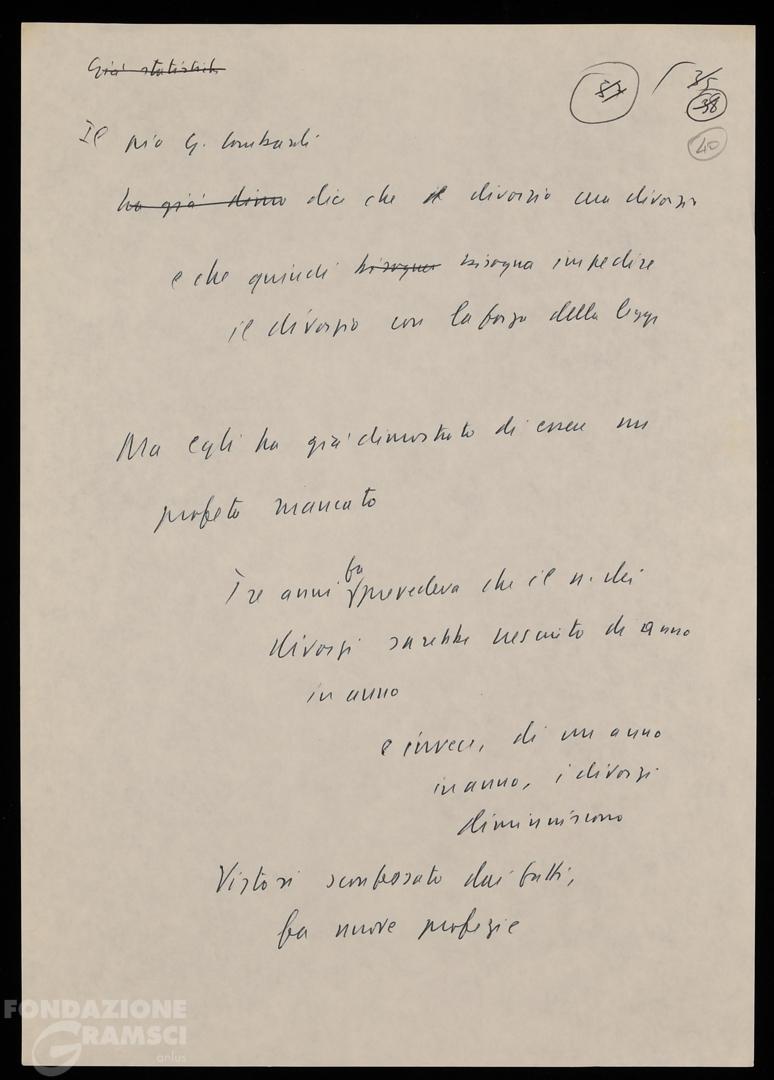 Già statistik
57
3/5
38
40
Il pio G. Lombardi
ha già dimo dice che il divorzio crea divorzi
e che quindi bisogna bisogna impedire
il divorzio con la forza della legge
Ma egli ha già dimostrato di essere un
profeta mancato
Tre anni fa prevedeva che il n. dei
divorzi sarebbe cresciuto di anno
in anno
e invece, di un anno
in anno, i divorzi
diminuiscono
Vistosi sconfessato dai fatti,
fa nuove profezie
FONDAZIONE
GRAMSCI
onlus